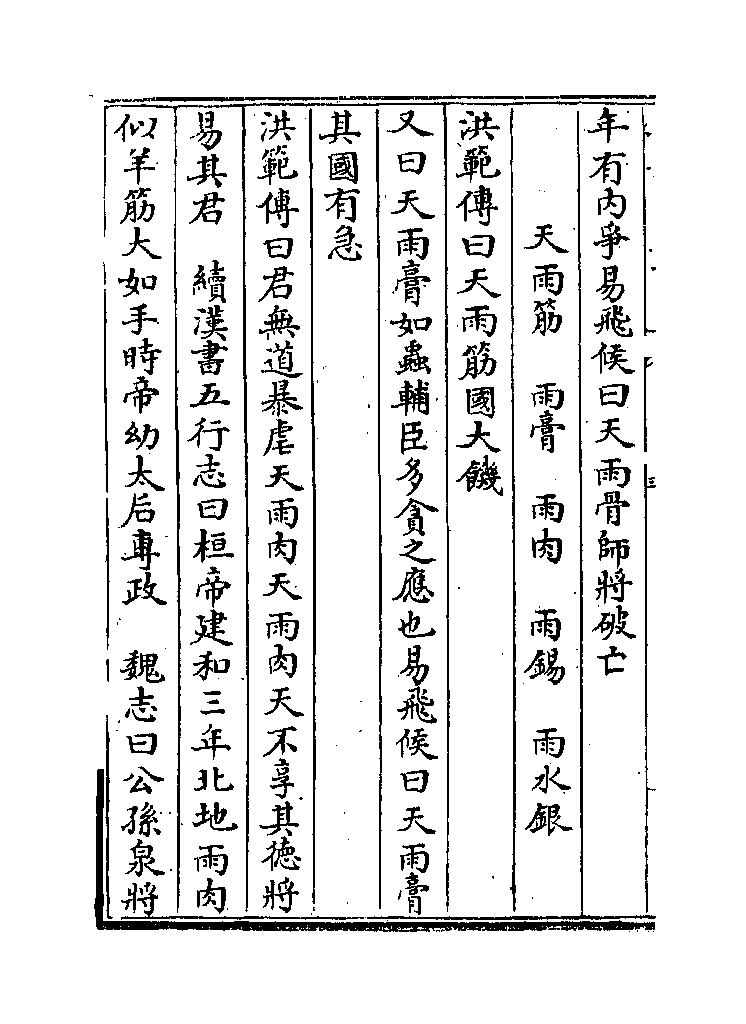 年有内爭易飛候曰天雨骨師將破亡
天雨筋　雨膏　雨肉　雨錫　雨水銀
洪範傳曰天雨筋國大饑
又曰天雨膏如蟲輔臣多貪之應也易飛候曰天雨膏
其國有急
洪範傳曰君無道暴虐天雨肉天雨肉天不享其徳將
易其君　續漢書五行志曰桓帝建和三年北地雨肉
似羊筋大如手時帝幼太后専政　魏志曰公孫泉將